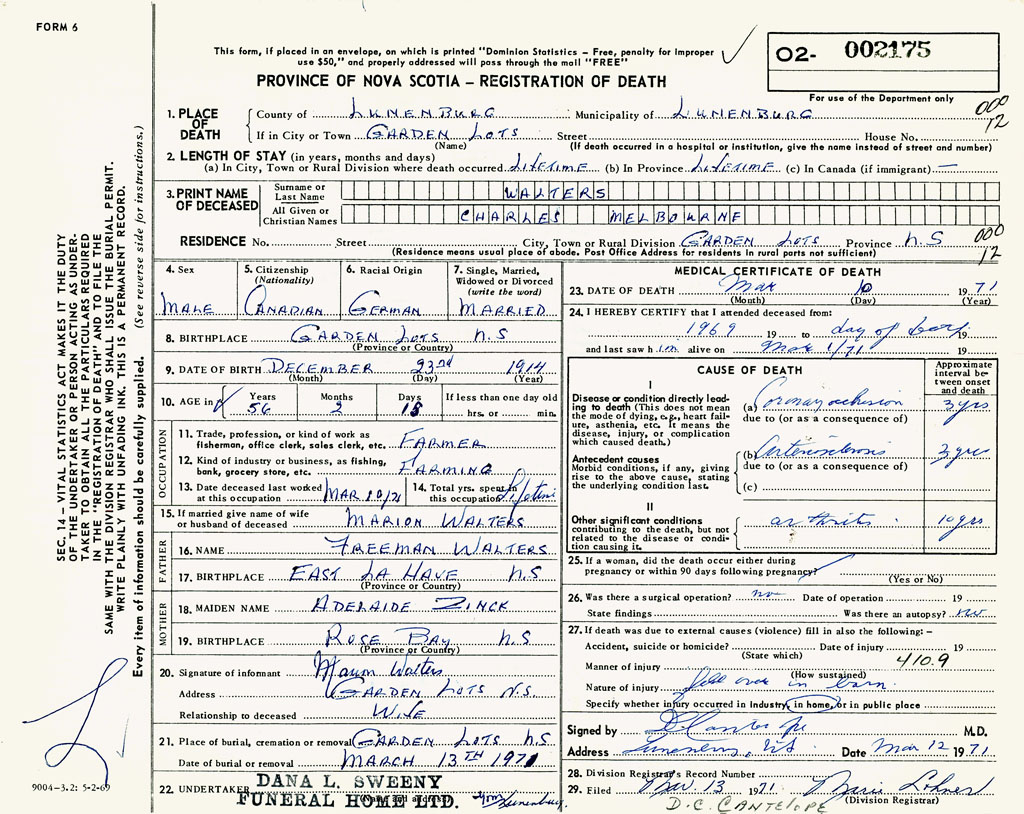 FORM 6
This form, if placed in an envelope, on which is printed "Dominion Statistics – Free, penalty for improper
use $50," and properly addressed will pass through the mail "FREE"
O2- 002175
PROVINCE OF NOVA SCOTIA – REGISTRATION OF DEATH
For use of the Department only
000
12
1. PLACE OF DEATH
County of LUNENBURG Municipality of LUNENBURG
If in City or Town GARDEN LOTS Street House No.
(Name) (If death occurred in a hospital or institution, give the name instead of street and number)
2. LENGTH OF STAY (in years, months and days)
(a) In City, Town or Rural Division where death occurred LIFETIME (b) In Province LIFETIME (c) In Canada (if immigrant) —
3. PRINT NAME OF DECEASED
Surname or Last Name WALTERS
All Given or Christian Names CHARLES MELBOURNE
RESIDENCE No. Street City, Town or Rural Division GARDEN LOTS Province N.S
(Residence means usual place of abode. Post Office Address for residents in rural parts not sufficient)
000
12
4. Sex MALE
5. Citizenship (Nationality) CANADIAN
6. Racial Origin GERMAN
7. Single, Married, Widowed or Divorced (write the word) MARRIED
8. BIRTHPLACE GARDEN LOTS N.S
(Province or Country)
9. DATE OF BIRTH DECEMBER 23rd 1914
(Month) (Day) (Year)
10. AGE in Years 56 Months 2 Days 15 If less than one day old hrs. or min.
OCCUPATION
11. Trade, profession, or kind of work as
fisherman, office clerk, sales clerk, etc. FARMER
12. Kind of industry or business, as fishing,
bank, grocery store, etc. FARMING
13. Date deceased last worked at this occupation MAR 10/71
14. Total yrs. spent in this occupation Lifetime
15. If married give name of wife
or husband of deceased MARION WALTERS
FATHER
16. NAME FREEMAN WALTERS
17. BIRTHPLACE EAST LA HAVE N.S
(Province or Country)
MOTHER
18. MAIDEN NAME ADELAIDE ZINCK
19. BIRTHPLACE ROSE BAY N.S
(Province or Country)
20. Signature of informant Marion Walters
Address GARDEN LOTS N.S.
Relationship to deceased WIFE
21. Place of burial, cremation or removal GARDEN LOTS N.S
Date of burial or removal MARCH 13TH 1971
22. UNDERTAKER DANA L. SWEENY
FUNERAL HOME LTD. Lunenburg
(Name and address)
MEDICAL CERTIFICATE OF DEATH
23. DATE OF DEATH Mar 10 1971
(Month) (Day) (Year)
24. I HEREBY CERTIFY that I attended deceased from:
1969 19 to day of death 19
and last saw him alive on Mar 1/71 19
CAUSE OF DEATH
Approximate interval between onset and death
I
Disease or condition directly leading
to death (This does not mean
the mode of dying, e.g., heart failure,
asthenia, etc. It means the
disease, injury, or complication
which caused death.)
(a) Coronary occlusion 3 yrs
due to (or as a consequence of)
Antecedent causes
Morbid conditions, if any, giving
rise to the above cause, stating
the underlying condition last.
(b) Arteriosclerosis 3 yrs
due to (or as a consequence of)
(c)
II
Other significant conditions
contributing to the death, but not
related to the disease or condition
causing it.
arthritis 10 yrs
25. If a woman, did the death occur either during
pregnancy or within 90 days following pregnancy?
(Yes or No)
26. Was there a surgical operation? no Date of operation 19
State findings Was there an autopsy? no
27. If death was due to external causes (violence) fill in also the following: –
Accident, suicide or homicide? Date of injury 19
(State which) 410.9
Manner of injury
(How sustained)
Nature of injury fell over in barn
Specify whether injury occurred in industry, in home, or in public place
Signed by D Cantelope M.D.
Address Lunenburg, N.S Date Mar 12 1971
28. Division Registrar's Record Number
29. Filed Mar. 13 1971 Marie
(Division Registrar)
D.C. CANTELOPE
SEC. 14 – VITAL STATISTICS ACT MAKES IT THE DUTY
OF THE UNDERTAKER OR PERSON ACTING AS UNDERTAKER
TO OBTAIN ALL THE PARTICULARS REQUIRED
IN THE "REGISTRATION OF DEATH" AND TO FILE THE
SAME WITH THE DIVISION REGISTRAR WHO SHALL ISSUE THE BURIAL PERMIT.
WRITE PLAINLY WITH UNFADING INK. THIS IS A PERMANENT RECORD.
Every item of information should be carefully supplied. (See reverse side for instructions.)
9004-3.2: 5-2-69